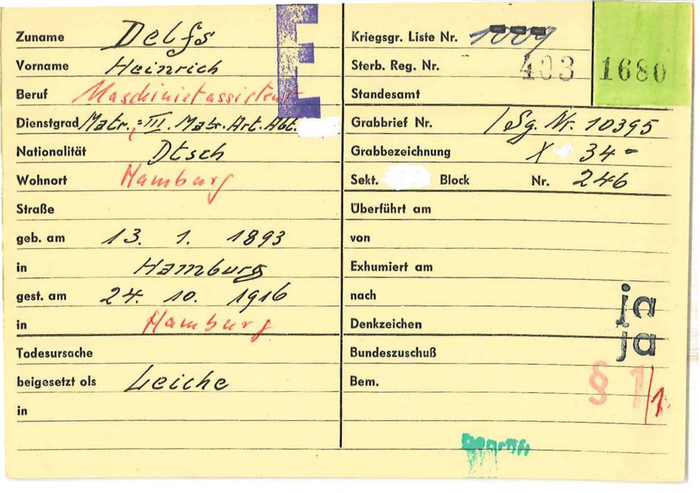 Zuname Delfs
Vorname Heinrich
Beruf Maschinistassistent
Dienstgrad Matr. III. Matr. Art. Abt.
Nationalität Dtsch
Wohnort Hamburg
Straße
geb. am 13. 1. 1893
in Hamburg
gest. am 24. 10. 1916
in Hamburg
Todesursache
beigesetzt als Leiche
in
E
Kriegsgr. Liste Nr. 1009
Sterb. Reg. Nr. 403 1680
Standesamt
Grabbrief Nr. Sg. Nr. 10395
Grabbezeichnung X 34
Sekt. Block Nr. 246
Überführt am
von
Exhumiert am
nach ja
Denkzeichen
Bundeszuschuß ja
Bem. § 1/1
geprüft